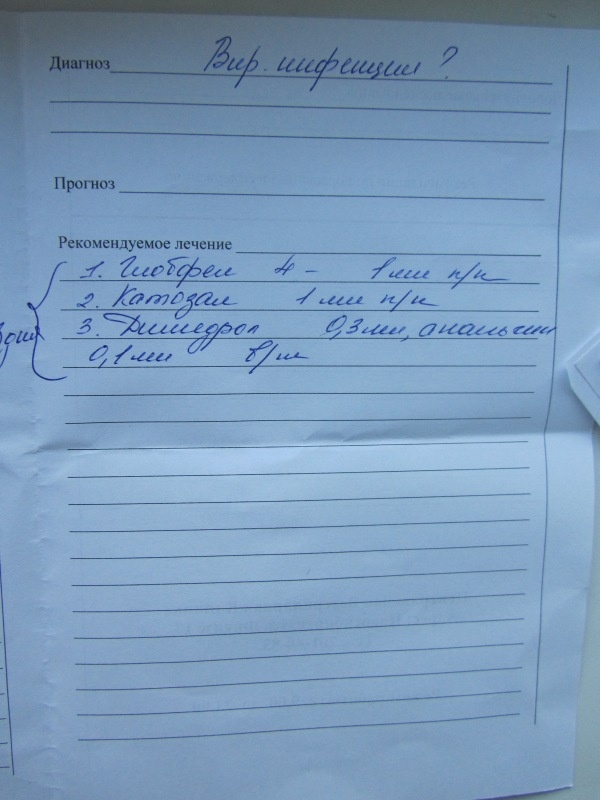 Диагноз Вир. инфекция ?
Прогноз
Рекомендуемое лечение
1. Глобфел 4 - 1 мл п/к
2. Катозал 1 мл п/к
3. Димедрол 0,3 мл, анальгин
0,1 мл в/м